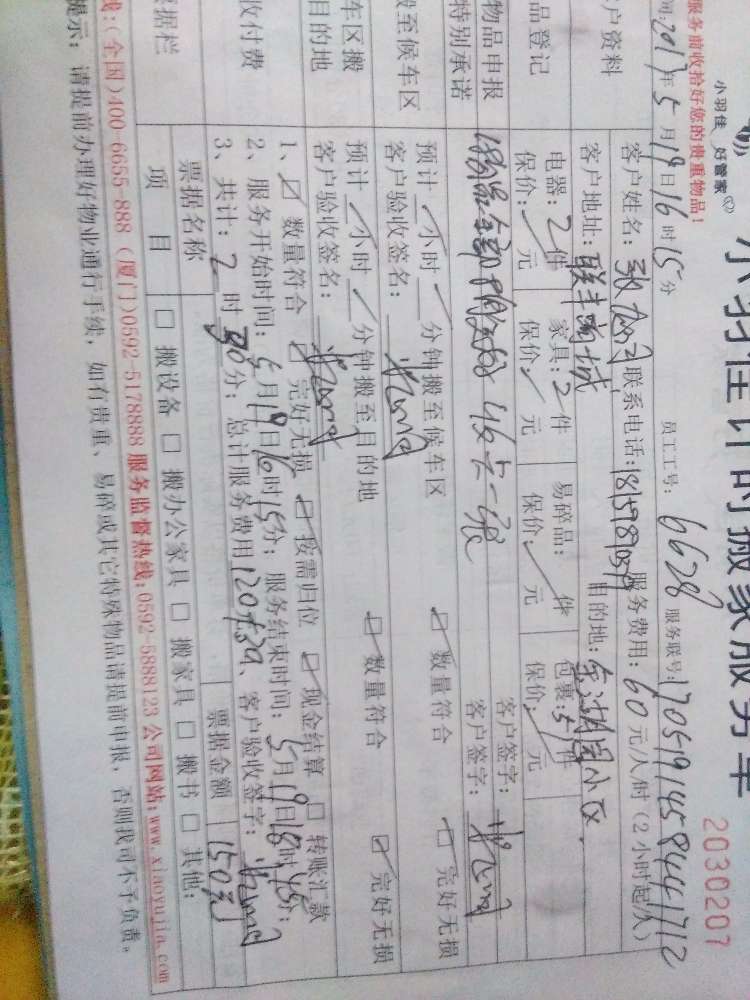 小羽佳 好管家
小羽佳计时搬家服务单
2030207
服务前收拾好您的贵重物品!
间:2017年5月19日16时15分 员工工号: 6628 服务联号:
户资料 客户姓名: 联系电话: 服务费用: 60元/人/时(2小时起/人)
客户地址: 联丰商城 目的地: 小区
品登记 电器: 2件 家具: 2件 易碎品: 件 包裹: 5件
保价: 元 保价: 元 保价: 元 保价: 元
物品申报 客户签字:
特别承诺 客户签字:
搬至候车区 预计 小时 分钟搬至候车区 ☑ 数量符合 ☑ 完好无损
客户验收签名:
车区搬 预计 小时 分钟搬至目的地 ☑ 数量符合 ☑ 完好无损
目的地 客户验收签名:
1、☑ 数量符合 ☑ 完好无损 ☑ 按需归位 ☑ 现金结算 □ 转账汇款
收付费 2、服务开始时间: 5月19日16时15分; 服务结束时间: 5月19日18时45分;
3、共计: 2时30分; 总计服务费用 客户验收签字:
票据栏 票据名称 票据金额 150元
项 目 □ 搬设备 □ 搬办公家具 □ 搬家具 □ 搬书 □ 其他:
线:(全国)400-6655-888 (厦门)0592-5178888 服务监督热线:0592-5888123 公司网站:www.xiaoyujia.com
提示: 请提前办理好物业通行手续, 如有贵重、易碎或其它特殊物品请提前申报, 否则我司不予负责。